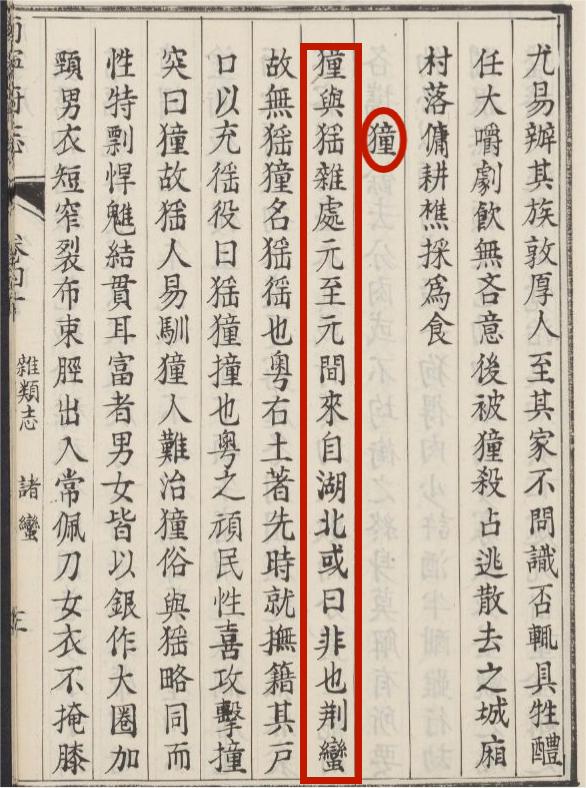 尤易辦其族敦厚人至其家不問識否輒具牲醴
任大嚼劇飲無吝意後被獞殺占逃散去之城廂
村落傭耕樵採爲食
獞
獞與猺雜處元至元間來自湖北或曰非也荆蠻
故無猺獞名猺徭也粤右土著先時就撫籍其戸
口以充徭役曰猺獞撞也粤之頑民性喜攻擊撞
突曰獞故猺人易馴獞人難治獞俗與猺略同而
性特剽悍魋結貫耳富者男女皆以銀作大圈加
頸男衣短窄裂布束脛出入常佩刀女衣不掩膝
雜類志
諸蠻